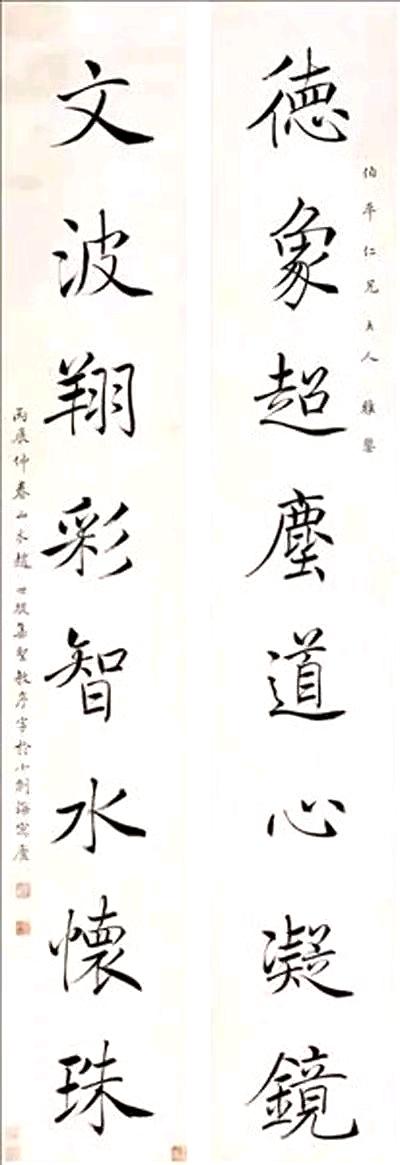 伯平仁兄大人 雅鑒
德象超塵道心凝鏡
文波翔彩智水懷珠
丙辰仲春山木趙世駿集聖教序字於小刺海寓廬